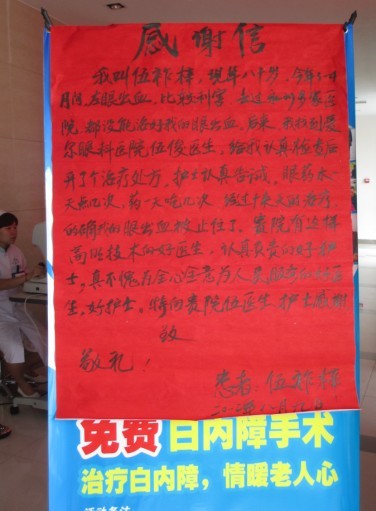 感谢信
我叫伍祚梓,现年八十岁,今年
月间左眼出血,比较利害,去过
院,都没能治好我的眼出血,后来,我找到爱
尔眼科医院伍俊医生,给我认真检查后
开了个治疗处方,护士认真告诫,眼药水一
天点几次,药一天吃几次,经过十来天的治疗
的确我的眼出血被止住了。贵院有这样
高明技术的好医生,认真负责的好护
士,真不愧为全心全意为人民服务的好医
生,好护士。特向贵院伍医生、护士致谢
致
敬礼!
患者:伍祚梓
免费白内障手术
治疗白内障,情暖老人心